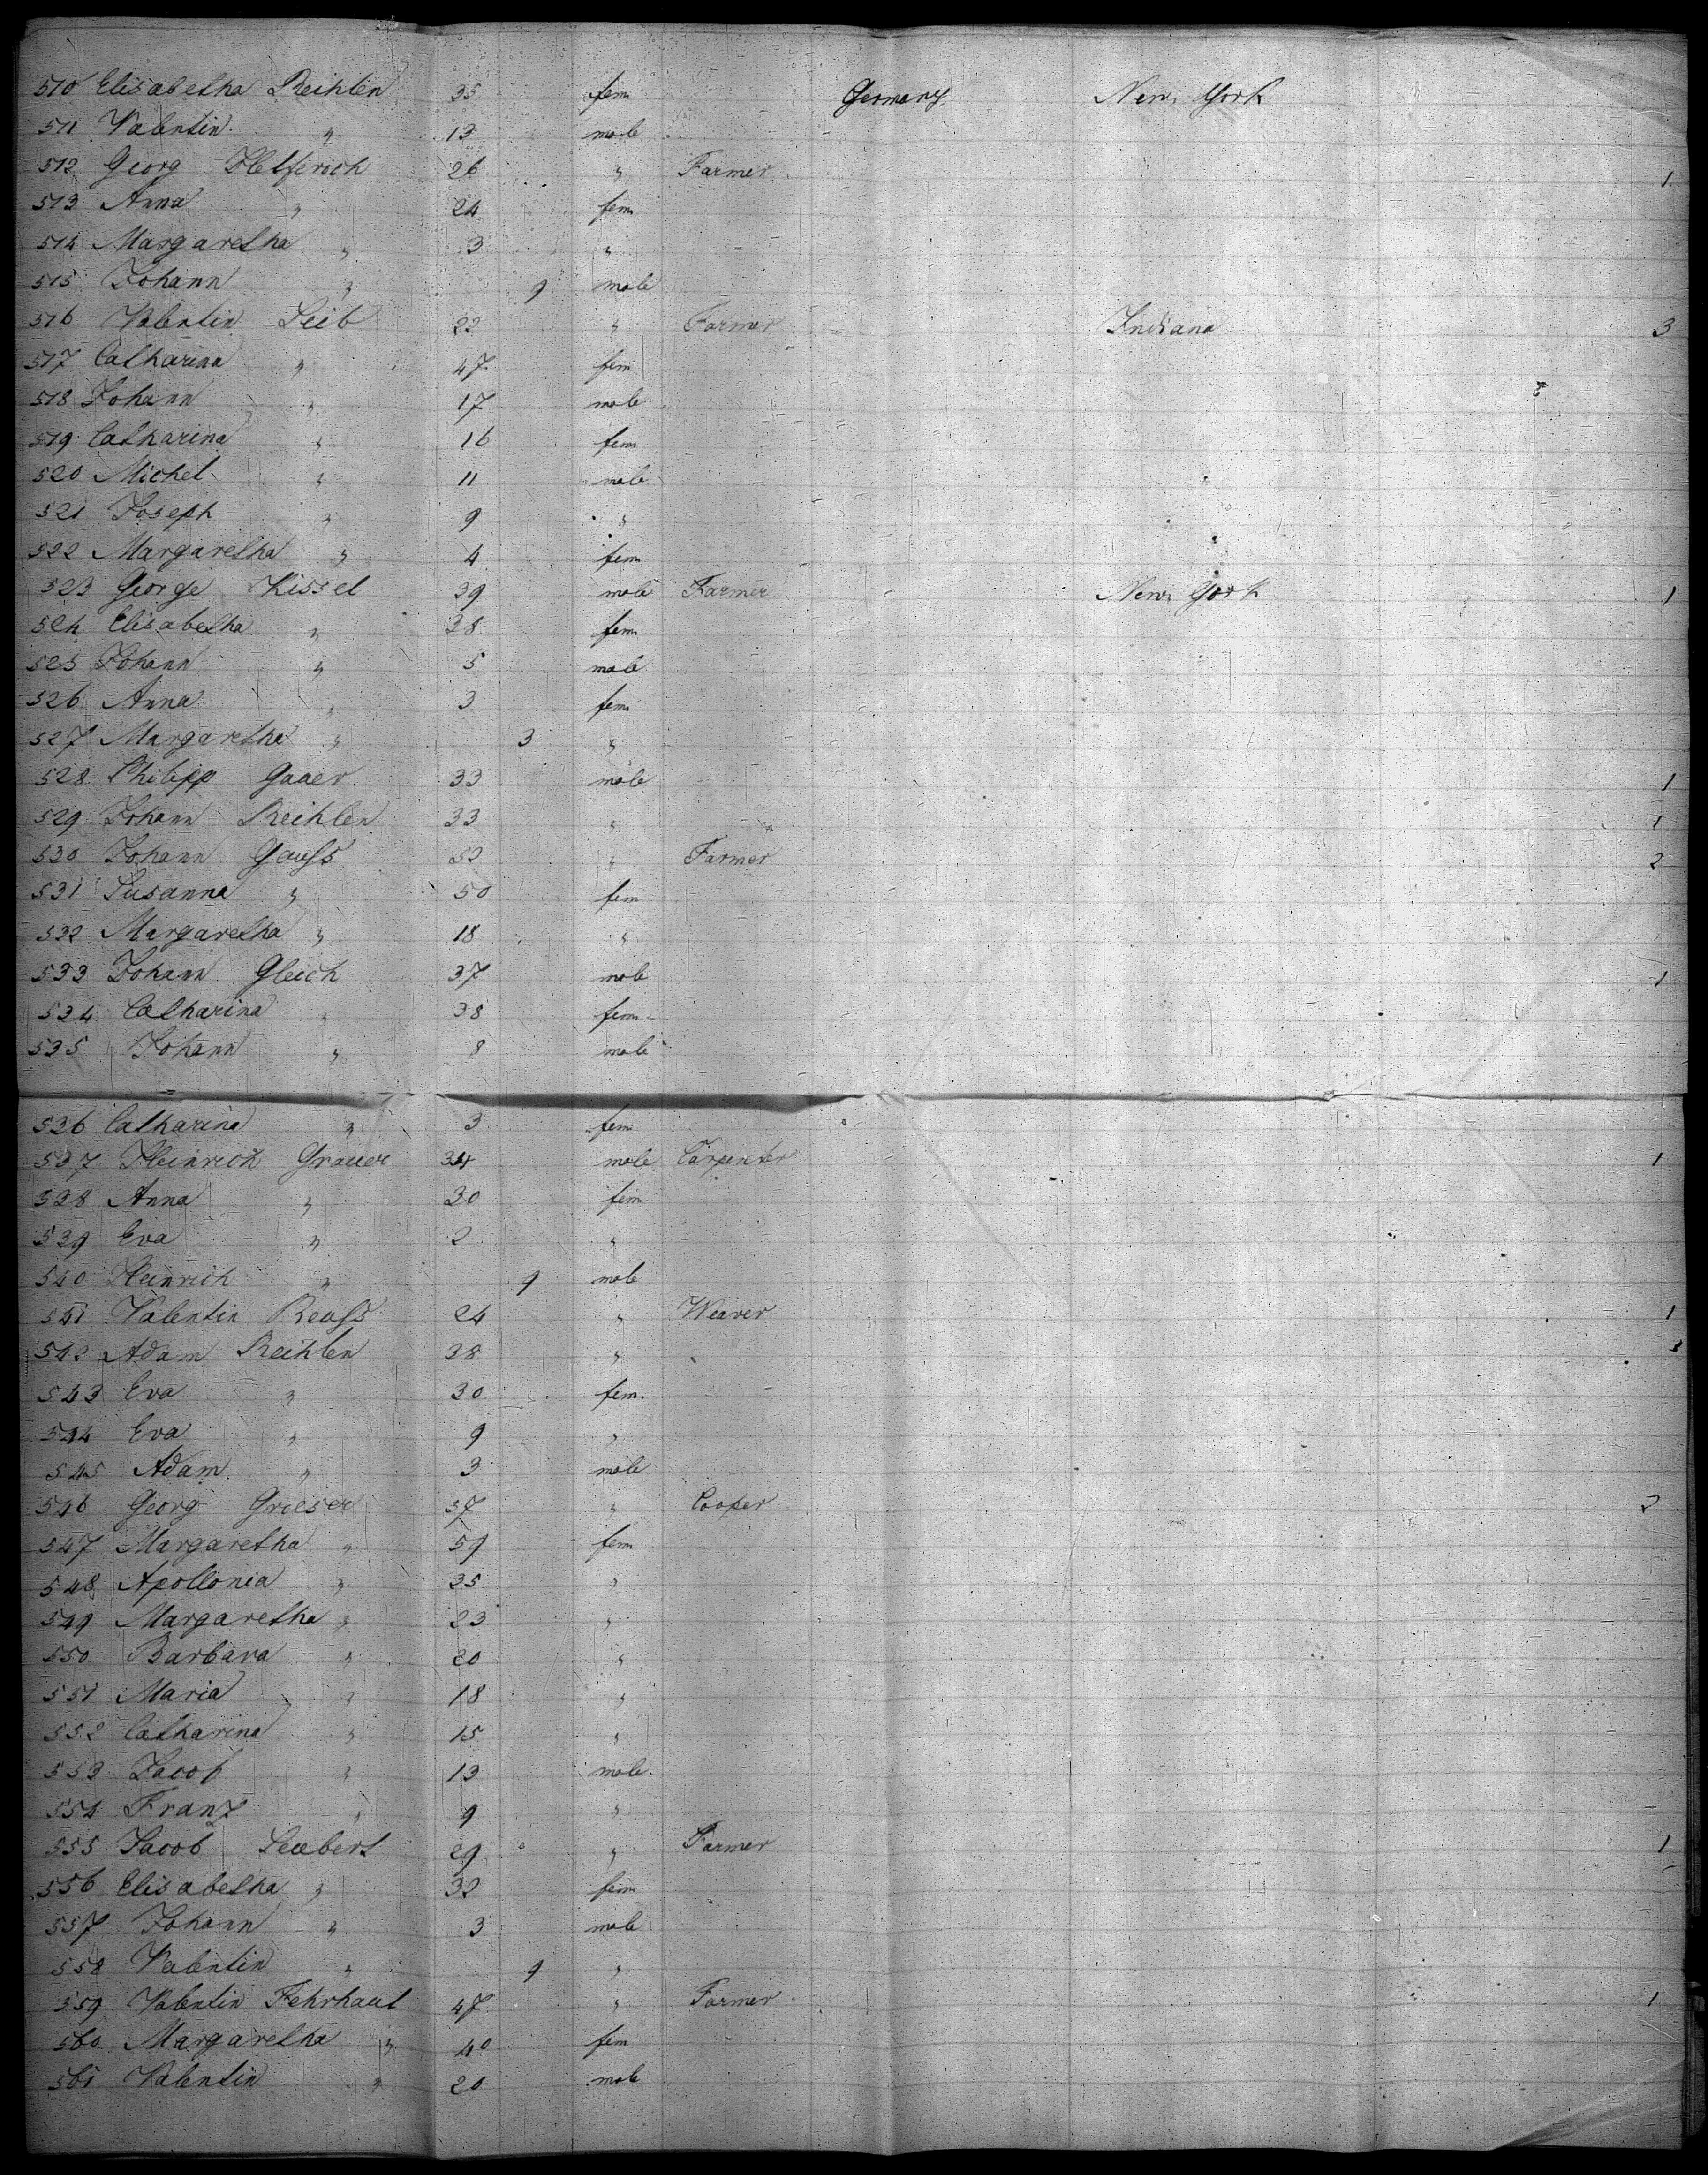 510 Elisabetha Reihlen 35 fem Germany New York
511 Valentin " 13 male
512 Georg Helferich 26 " Farmer 1
513 Anna " 24 fem
514 Margaretha " 3 "
515 Johann " 9 male
516 Valentin Leib 22 " Farmer Indiana 3
517 Catharina " 47 fem
518 Johann " 17 male
519 Catharina " 16 fem
520 Michel " 11 male
521 Joseph " 9 "
522 Margaretha " 4 fem
523 George Kissel 39 male Farmer New York 1
524 Elisabetha " 38 fem
525 Johann " 5 male
526 Anna " 3 fem
527 Margaretha " 3 "
528 Philipp Gauer 33 male 1
529 Johann Reihlen 33 " 1
530 Johann Gauss 52 " Farmer 2
531 Susanna " 50 fem
532 Margaretha " 18 "
533 Johann Gleich 37 male 1
534 Catharina " 38 fem
535 Johann " 8 male
536 Catharina " 3 fem
537 Heinrich Grauer 34 male Carpenter 1
538 Anna " 30 fem
539 Eva " 2 "
540 Heinrich " 9 male
541 Valentin Reuss 24 " Weaver 1
542 Adam Reihlen 38 "
543 Eva " 30 fem.
544 Eva " 9 "
545 Adam " 3 male
546 Georg Grieser 57 " Cooper 2
547 Margaretha " 59 fem
548 Apollonia " 35 "
549 Margaretha " 23 "
550 Barbara " 20 "
551 Maria " 18 "
552 Catharina " 15 "
553 Jacob " 13 male
554 Franz " 9 "
555 Jacob Leubert 29 " Farmer 1
556 Elisabetha " 32 fem
557 Johann " 3 male
558 Valentin " 9 "
559 Valentin Fehrhaut 47 " Farmer 1
560 Margaretha " 40 fem
561 Valentin " 20 male